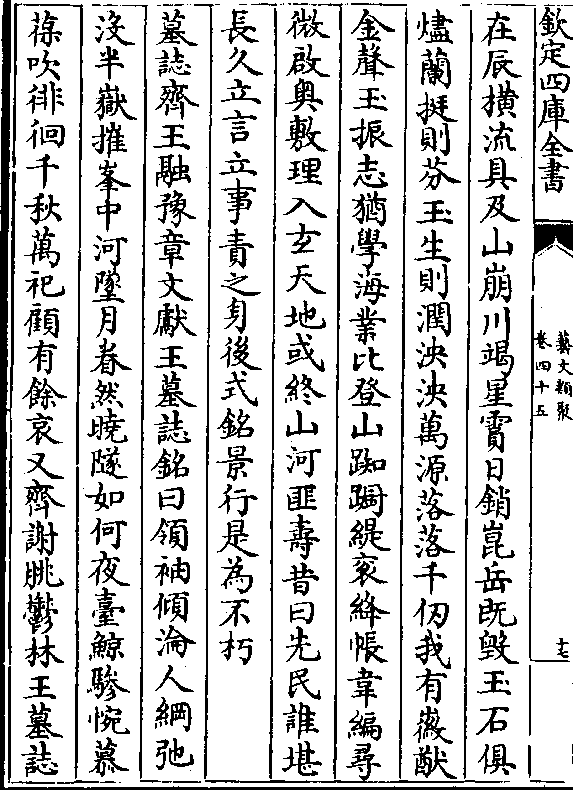 欽定四庫全書
藝文類聚
卷四十五
十七
在辰橫流具及山崩川竭星霣日銷崑岳既毀玉石俱
燼蘭挺則芬玉生則潤泱泱萬源落落千仞我有徽猷
金聲玉振志猶學海業比登山踟躕緹衮絳帳韋編尋
微啟奧敷理入玄天地或終山河匪壽昔曰先民誰堪
長久立言立事責之身後式銘景行是為不朽
墓誌齊王融豫章文獻王墓誌銘曰領袖傾淪人綱弛
沒半嶽摧峯中河墜月眷然曉隧如何夜臺鯨驂惋慕
葆吹徘徊千秋萬祀顧有餘哀又齊謝朓鬱林王墓誌